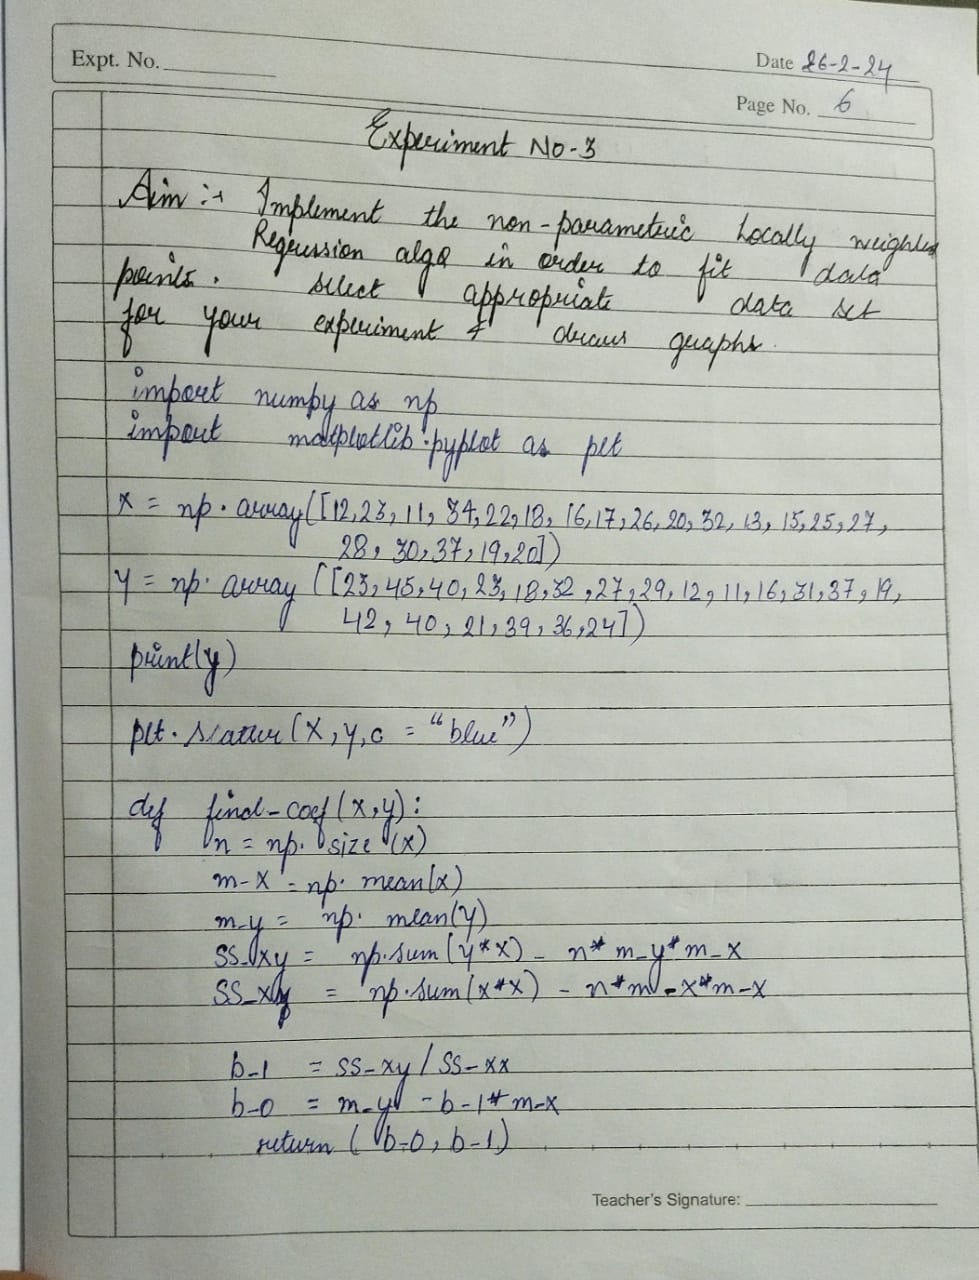 Expt. No.
Date 26-2-24
Page No. 6
Experiment No-3
Aim :- Implement the non-parametric Locally weighted
Regression algo in order to fit data
points. select appropriate data set
for your experiment & draws graphs.
import numpy as np
import matplotlib.pyplot as plt
x = np.array([12,23,11,34,22,18,16,17,26,20,32,13,15,25,27,
28,30,37,19,20])
y = np.array([23,45,40,23,18,32,27,29,12,11,16,31,37,19,
42,40,21,39,36,24])
print(y)
plt.scatter(x,y,c = "blue")
def find-coef(x,y):
n = np.size(x)
m-x = np.mean(x)
m-y = np.mean(y)
SS-xy = np.sum(y*x) - n*m-y*m-x
SS-xy = np.sum(x*x) - n*m-x*m-x
b-1 = SS-xy/SS-xx
b-0 = m-y - b-1*m-x
return (b-0, b-1)
Teacher's Signature: